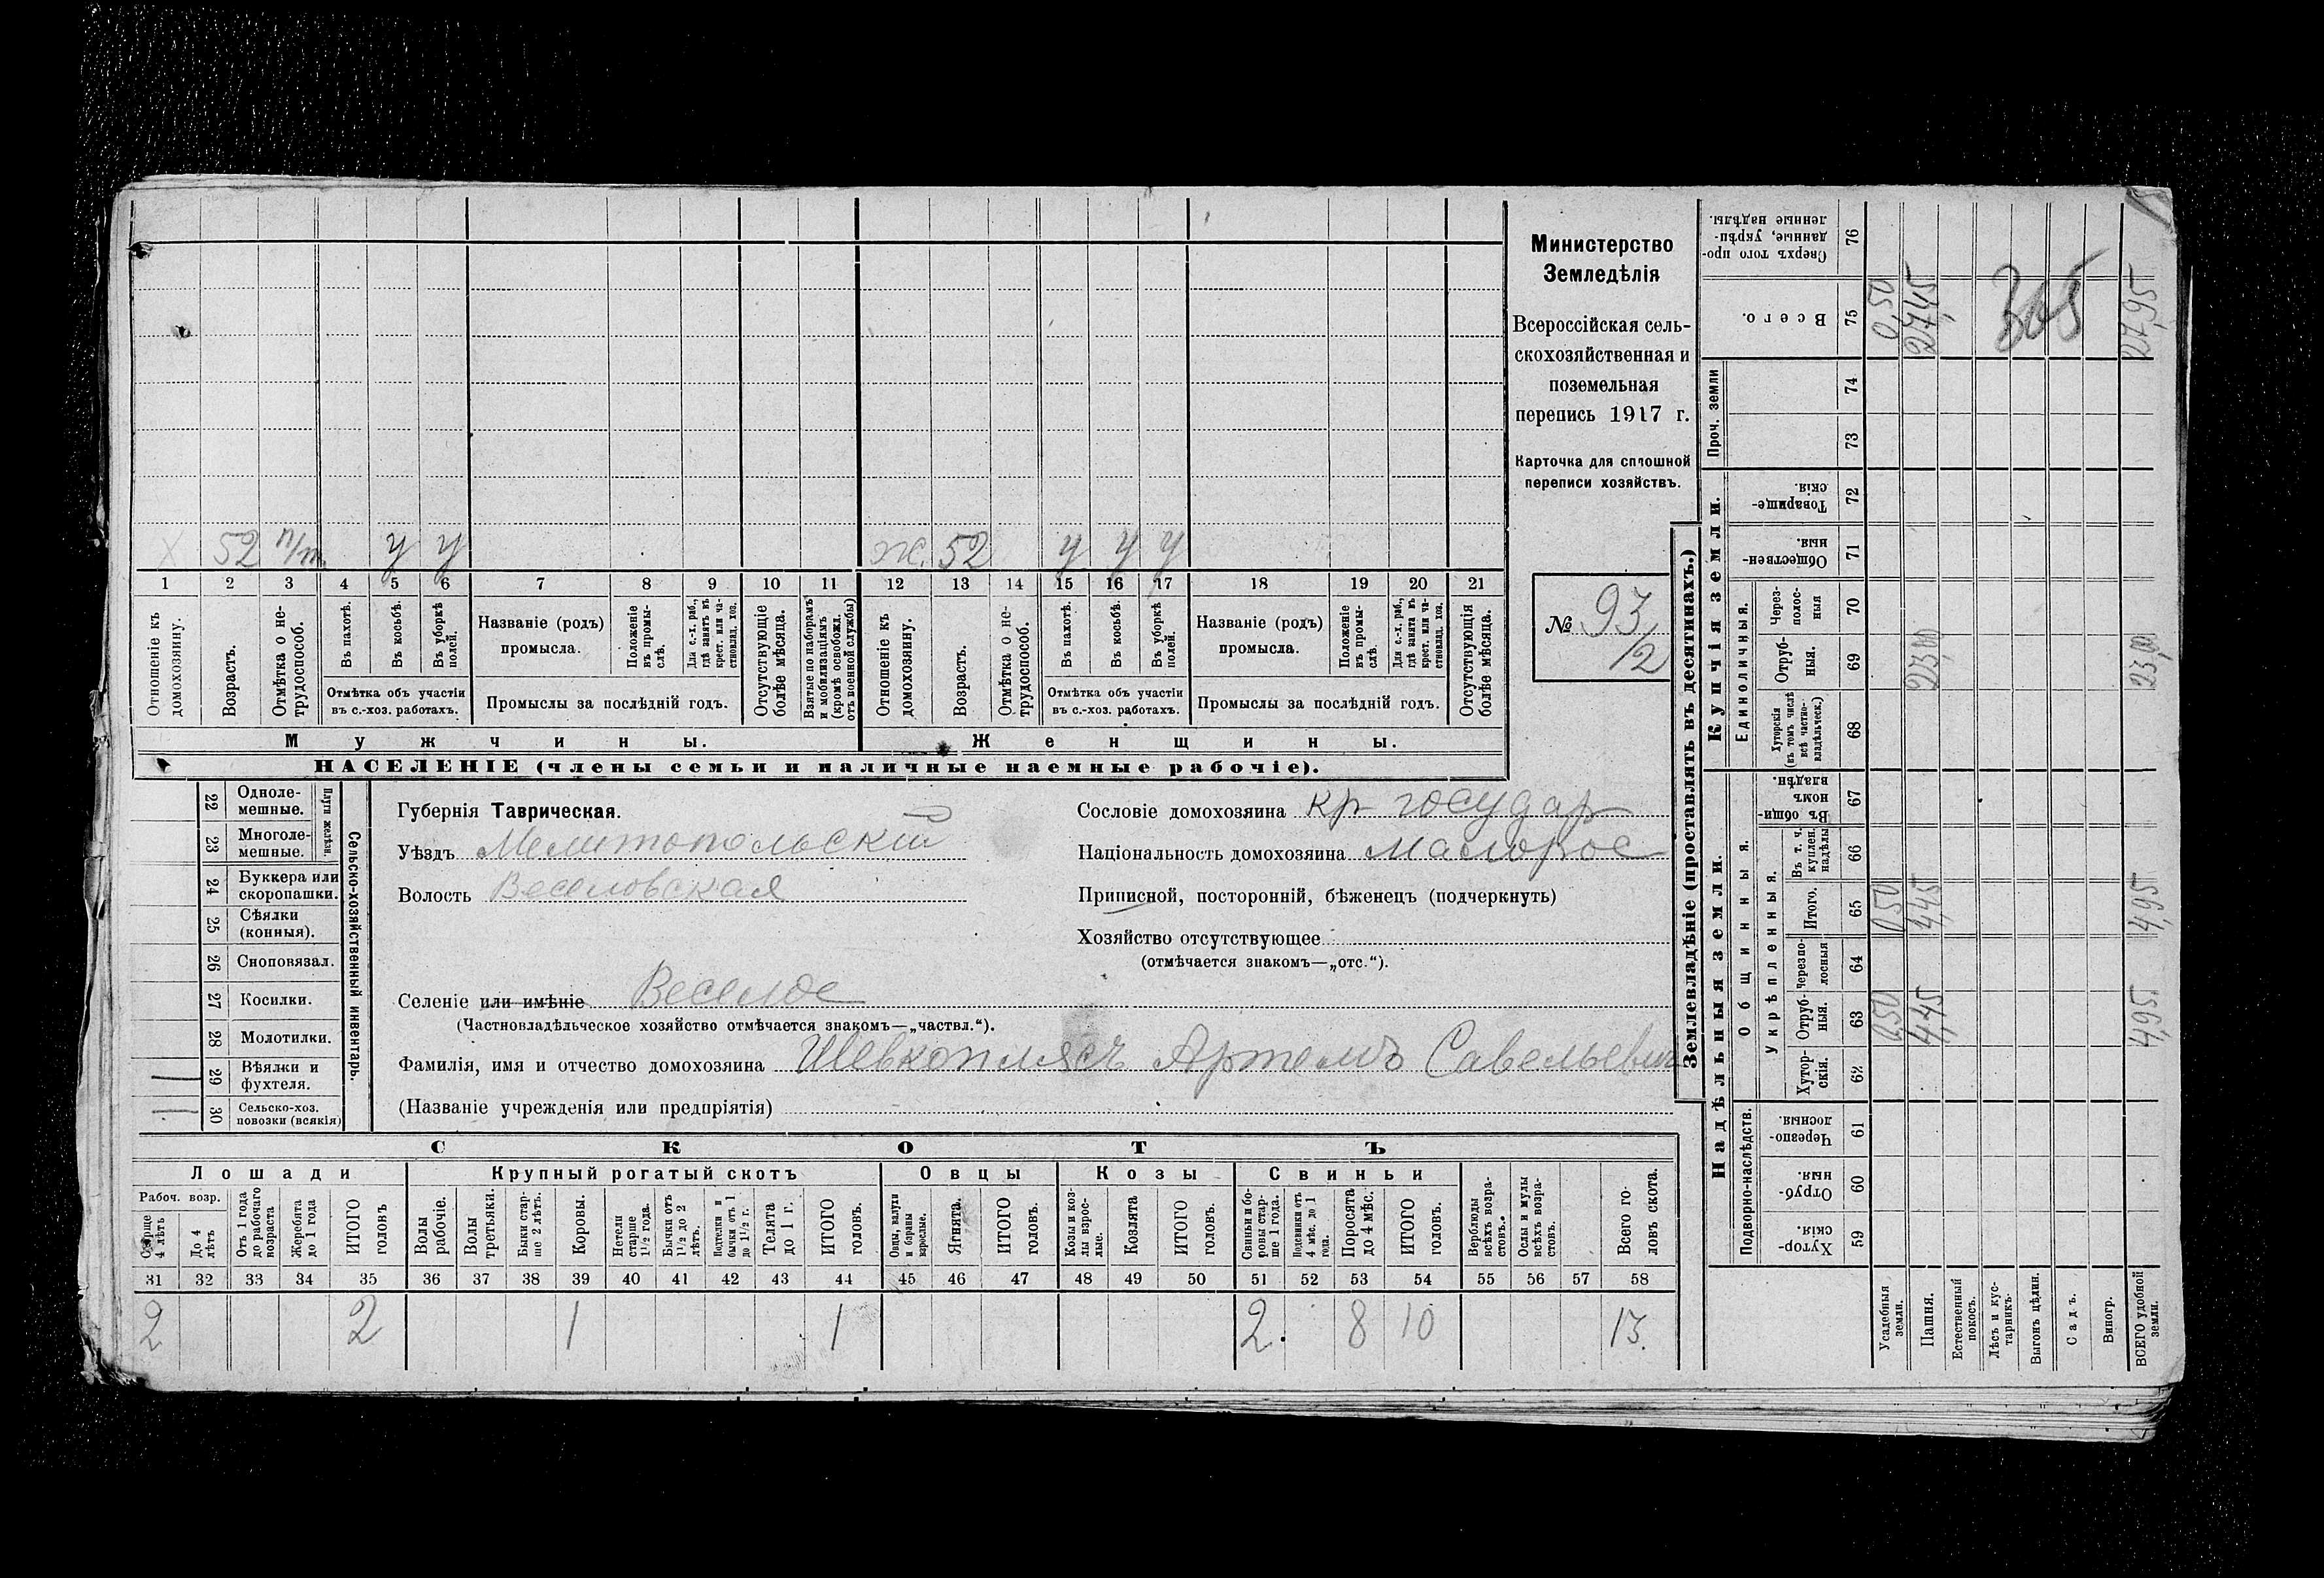 Министерство
Земледѣлія
Всероссійская сель-
скохозяйственная и
поземельная
перепись 1917 г.
Карточка для сплошной
переписи хозяйствъ.
№ 93
1/2
х 52 п/т. У У
ж. 52 У У У
1 2 3 4 5 6 7 8 9 10 11 12 13 14 15 16 17 18 19 20 21
Отношеніе къ домохозяину.
Возрастъ.
Отмѣтка о не-трудоспособ.
Въ пахотѣ.
Въ косьбѣ.
Въ уборкѣ полей.
Отмѣтка объ участіи
въ с.-хоз. работахъ.
Названіе (родъ)
промысла.
Положеніе въ промы-слѣ.
Для с.-х. раб., гдѣ занятъ въ крест. или ча-стновлад. хоз.
Промыслы за послѣдній годъ.
Отсутствующіе болѣе мѣсяца.
Взятые по наборамъ и мобилизаціямъ (кромѣ освобожд. отъ военной службы)
Отношеніе къ домохозяину.
Возрастъ.
Отмѣтка о не-трудоспособ.
Въ пахотѣ.
Въ косьбѣ.
Въ уборкѣ полей.
Отмѣтка объ участіи
въ с.-хоз. работахъ.
Названіе (родъ)
промысла.
Положеніе въ промы-слѣ.
Для с.-х. раб., гдѣ занята въ крест. или ча-стновлад. хоз.
Промыслы за послѣдній годъ.
Отсутствующія болѣе мѣсяца.
Мужчины.
Женщины.
НАСЕЛЕНІЕ (члены семьи и наличные наемные рабочіе).
22 Одноле-мешные.
23 Многоле-мешные.
Плуги желѣзн.
24 Буккера или скоропашки.
25 Сѣялки (конныя).
26 Сноповязал.
27 Косилки.
28 Молотилки.
1 29 Вѣялки и фухтеля.
1 30 Сельско-хоз. повозки (всякія)
Сельско-хозяйственный инвентарь.
Губернія Таврическая.
Уѣздъ Мелитопольскій
Волость Веселовская
Сословіе домохозяина кр государ
Національность домохозяина малорос
Приписной, посторонній, бѣженецъ (подчеркнуть)
Хозяйство отсутствующее
(отмѣчается знакомъ—„отс.“).
Селеніе или имѣніе Веселое
(Частновладѣльческое хозяйство отмѣчается знакомъ—„частвл.“).
Фамилія, имя и отчество домохозяина Шевкоплясъ Артемъ Савельевич
(Названіе учрежденія или предпріятія)
СКОТЪ
Лошади
Крупный рогатый скотъ
Овцы
Козы
Свиньи
Рабоч. возр.
Старше 4 лѣтъ
До 4 лѣтъ
Отъ 1 года до рабочаго возраста
Жеребята до 1 года
ИТОГО головъ
Волы рабочіе.
Волы третьяки.
Быки стар-ше 2 лѣтъ.
Коровы.
Нетели старше 1½ года.
Бычки отъ 1½ до 2 лѣтъ.
Подтелки и бычки отъ 1 до 1½ г.
Телята до 1 г.
ИТОГО головъ.
Овцы, валухи и бараны взрослые.
Ягнята.
ИТОГО головъ.
Козы и коз-лы взрос-лые.
Козлята
ИТОГО головъ.
Свиньи и бо-ровы стар-ше 1 года.
Подсвинки отъ 4 мѣс. до 1 года.
Поросята до 4 мѣс.
ИТОГО головъ.
Верблюды всѣхъ возра-стовъ.
Ослы и мулы всѣхъ возра-стовъ.
Всего го-ловъ скота.
31 32 33 34 35 36 37 38 39 40 41 42 43 44 45 46 47 48 49 50 51 52 53 54 55 56 57 58
2 2 1 1 2. 8 10 13.
Землевладѣніе (проставлять въ десятинахъ.)
Надѣльныя земли.
Купчія земли.
Проч. земли
Подворно-наслѣдств.
Общинныя.
Укрѣпленныя.
Единоличныя.
Хутор-скія. 59
Отруб-ныя. 60
Черезпо-лосныя 61
Хутор-скія. 62
Отруб-ныя. 63
Черезпо-лосныя 64
Итого. 65
Въ т. ч. куплен. надѣлы 66
Въ общи-номъ владѣн. 67
Хуторскія (въ томъ числѣ всѣ частно-владѣльческ.) 68
Отруб-ныя. 69
Через-полос-ныя 70
Обществен-ныя. 71
Товарище-скія. 72
73
74
Всего. 75
Сверхъ того про-данные, укрѣп-ленные надѣлы. 76
Усадебныя земли. 0,50 0,50 0,50
Пашня. 4,45 4,45 23,00 27,45
Естественный покосъ.
Лѣсъ и кус-тарникъ.
Выгонъ цѣлин.
Садъ.
Виногр.
ВСЕГО удобной земли. 4,95 4,95 23,00 27,95
305